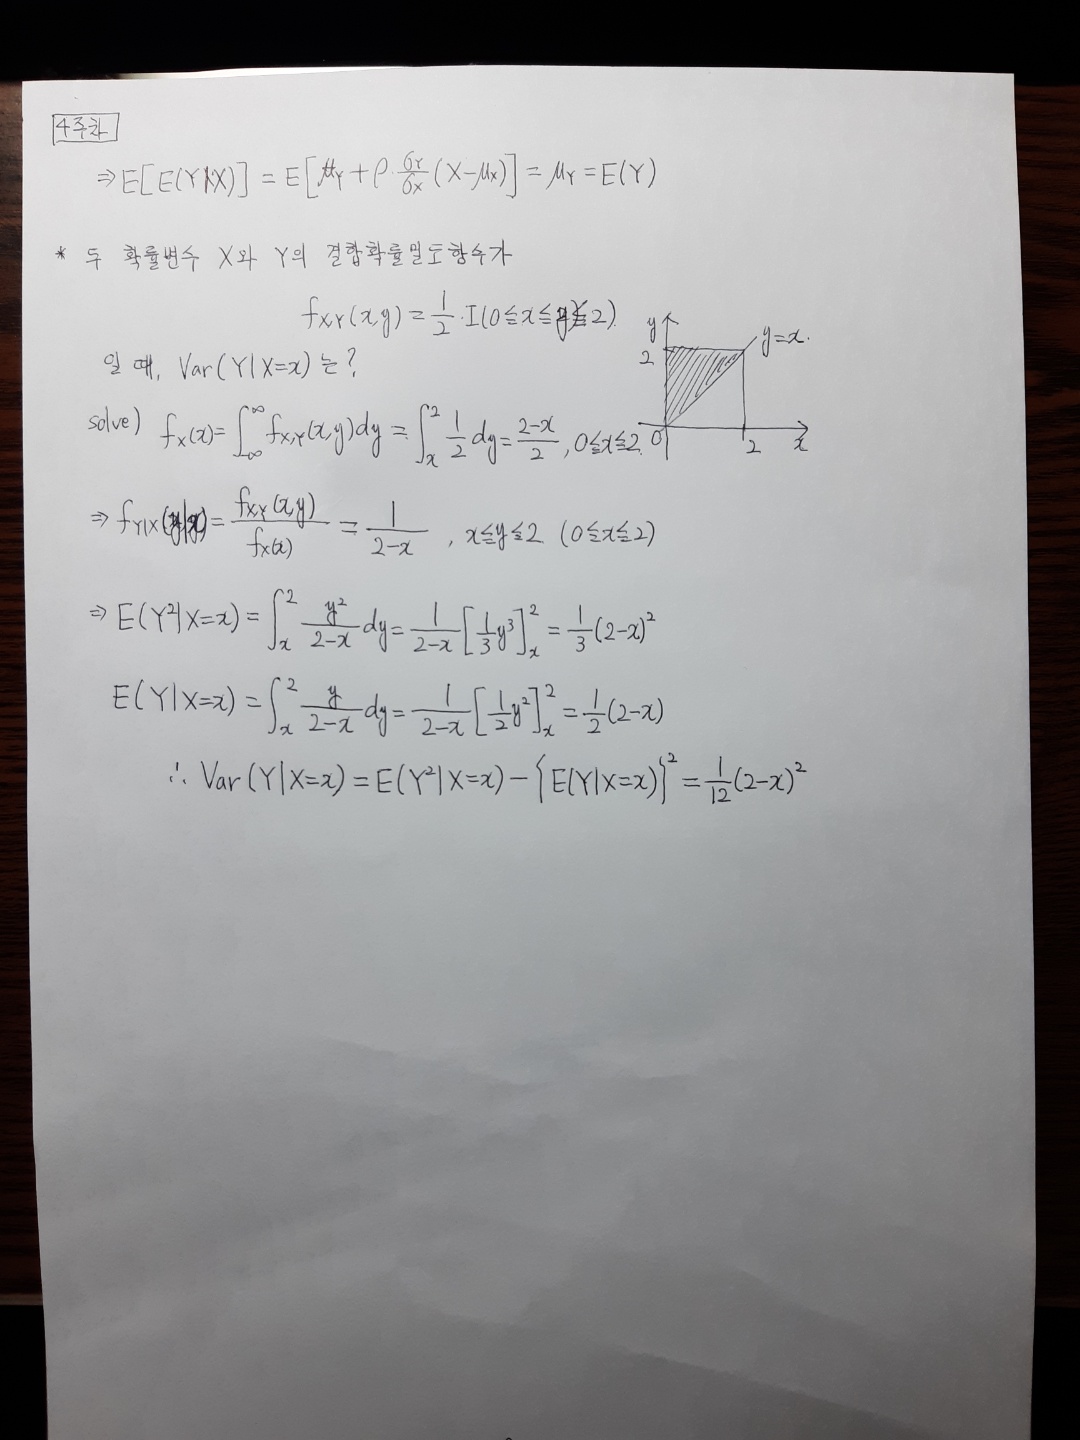 4주차
⇒ E[E(Y|X)] = E[μ_Y + ρ·σ_Y/σ_X (X-μ_X)] = μ_Y = E(Y)
* 두 확률변수 X와 Y의 결합확률밀도함수가
f_X,Y(x,y) = 1/2 · I(0≦x≦y≦2)
일 때, Var(Y|X=x)는?
y
2
y=x.
0
2
x
solve) f_X(x) = ∫_{-∞}^{∞} f_X,Y(x,y)dy = ∫_x^2 1/2 dy = (2-x)/2, 0≦x≦2
⇒ f_Y|X(y|x) = f_X,Y(x,y)/f_X(x) = 1/(2-x), x≦y≦2 (0≦x≦2)
⇒ E(Y²|X=x) = ∫_x^2 y²/(2-x) dy = 1/(2-x) [1/3 y³]_x^2 = 1/3 (2-x)²
E(Y|X=x) = ∫_x^2 y/(2-x) dy = 1/(2-x) [1/2 y²]_x^2 = 1/2 (2-x)
∴ Var(Y|X=x) = E(Y²|X=x) - {E(Y|X=x)}² = 1/12 (2-x)²